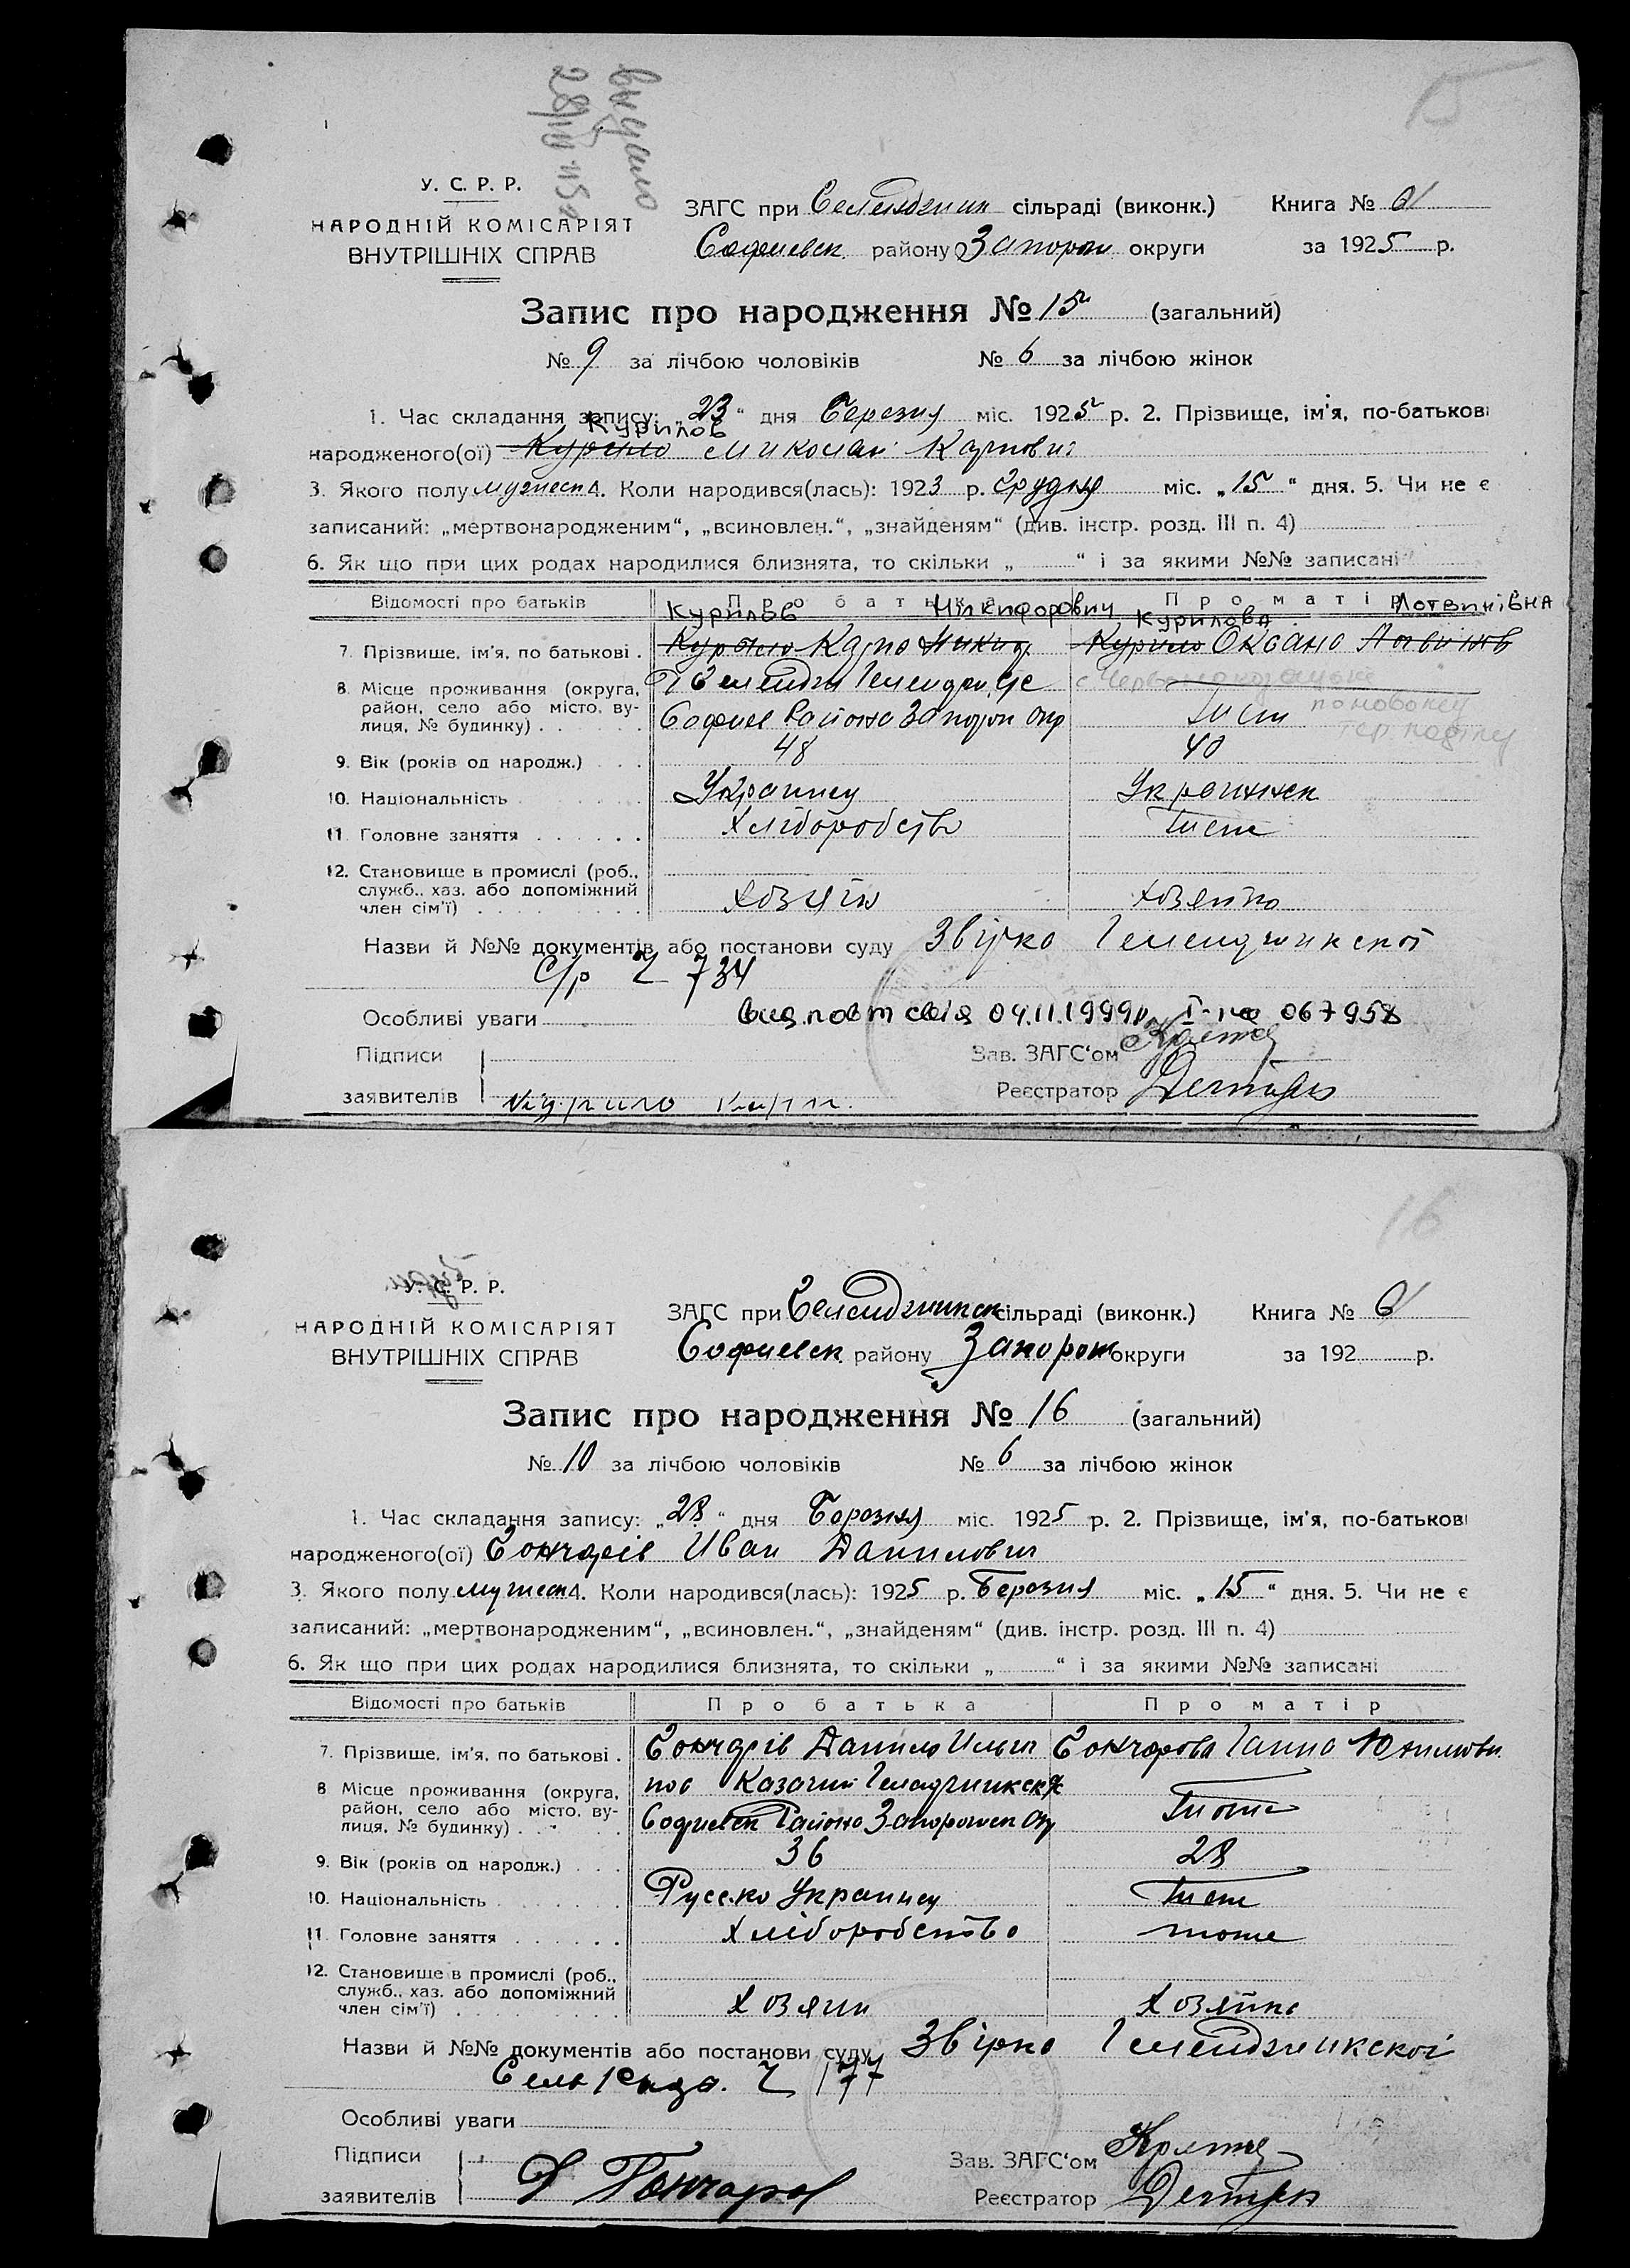 15
видано
У. С. Р. Р.
НАРОДНІЙ КОМІСАРІЯТ
ВНУТРІШНІХ СПРАВ
ЗАГС при сільраді (виконк.) Книга №
Софиевск району Запорож округи за 1925 р.
Запис про народження № 15 (загальний)
№ 9 за лічбою чоловіків № 6 за лічбою жінок
1. Час складання запису: „23“ дня Березня міс. 1925 р. 2. Прізвище, ім'я, по-батькові
Курилов
народженого(ої) Курило Миколай Карпович
3. Якого полу мужеск 4. Коли народився(лась): 1923 р. Грудня міс. „15“ дня. 5. Чи не є
записаний: „мертвонародженим“, „всиновлен.“, „знайденям“ (див. інстр. розд. III п. 4)
6. Як що при цих родах народилися близнята, то скільки „ “ і за якими №№ записані
Відомості про батьків Про батька Про матір
Курилов Нікіфорович Курилова Лотвинівна
7. Прізвище, ім'я, по батькові . Курило Карпо Никиф. Курило Оксана Литвинов
8. Місце проживання (округа, район, село або місто, вулиця, № будинку) . Софиев Района Запорож окр
с. Червонокозацьке по новому тер. поділу
9. Вік (років од народж.) 48 40
10. Національність Украинец Украинск
11. Головне заняття Хліборобств
12. Становище в промислі (роб., служб., хаз. або допоміжний член сім'ї) Хозяін хозяйка
Назви й №№ документів або постанови суду Звірка
С/р Ч 734
Особливі уваги вид. повт свід 04.11.1999р. І-жс 067958
Підписи Зав. ЗАГС'ом
заявителів Курило Карп. Реєстратор
16
У. С. Р. Р.
НАРОДНІЙ КОМІСАРІЯТ
ВНУТРІШНІХ СПРАВ
ЗАГС при Гелендживск сільраді (виконк.) Книга №
Софиевск району Запорож округи за 192 р.
Запис про народження № 16 (загальний)
№ 10 за лічбою чоловіків № 6 за лічбою жінок
1. Час складання запису: „28“ дня Березня міс. 1925 р. 2. Прізвище, ім'я, по-батькові
народженого(ої) Гончарів Иван Данилович
3. Якого полу мужеск 4. Коли народився(лась): 1925 р. Березня міс. „15“ дня. 5. Чи не є
записаний: „мертвонародженим“, „всиновлен.“, „знайденям“ (див. інстр. розд. III п. 4)
6. Як що при цих родах народилися близнята, то скільки „ “ і за якими №№ записані
Відомості про батьків Про батька Про матір
7. Прізвище, ім'я, по батькові . Гончарів Данило Ильич Гончарова Ганна
8 Місце проживання (округа, район, село або місто, вулиця, № будинку) . пос Казачий Софиевск Района Запорожск Окр Тоже
9. Вік (років од народж.) 36 28
10. Національність Русско Украинец
11. Головне заняття Хліборобство тоже
12. Становище в промислі (роб., служб., хаз. або допоміжний член сім'ї) Хозяин Хозяйка
Назви й №№ документів або постанови суду Звірка Гелендживкскоі
Ч 177
Особливі уваги
Підписи Зав. ЗАГС'ом
заявителів Д Гончаров Реєстратор